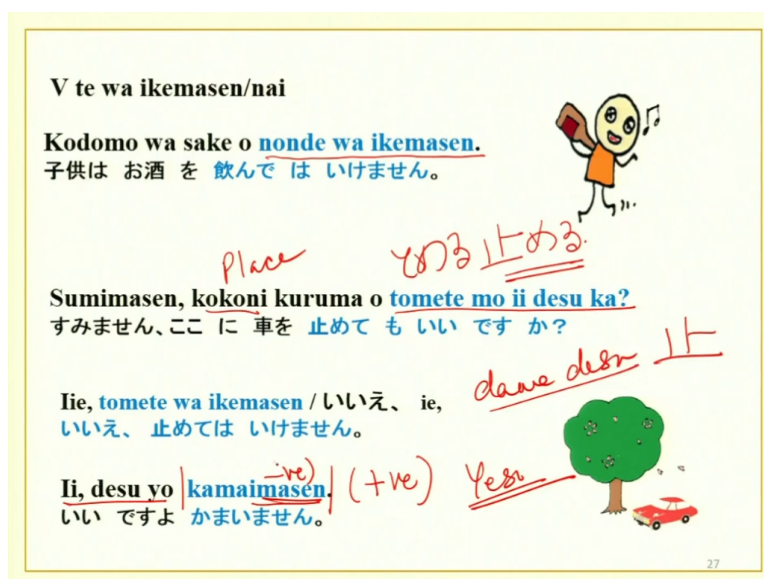 V te wa ikemasen/nai
Kodomo wa sake o nonde wa ikemasen.
子供は お酒 を 飲んで は いけません。
Place とめる 止める.
Sumimasen, kokoni kuruma o tomete mo ii desu ka?
すみません、ここ に 車を 止めて も いい です か？
dame desu 止
Iie, tomete wa ikemasen / いいえ、 ie,
いいえ、 止めては いけません。
-ve)
Ii, desu yo kamaimasen. (+ve) Yes
いい ですよ かまいません。
27